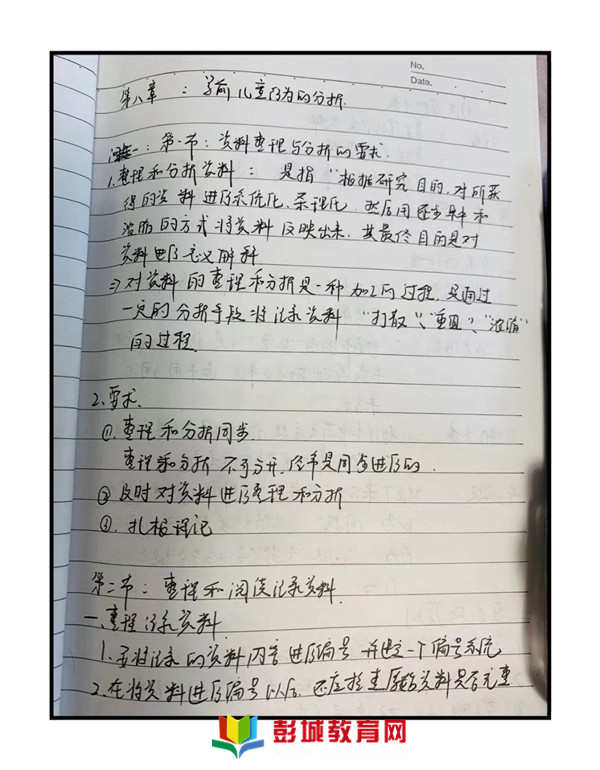 No.
Date.
第八章：学前儿童行为的分析.
一：第一节：资料整理与分析的要求
1.整理和分析资料：是指“根据研究目的,对所获
得的资料进行系统化、条理化，然后用逐步集中和
浓缩的方式将资料反映出来，其最终目的是对
资料进行意义解释
⇒对资料的整理和分析是一种加工的过程,是通过
一定的分析手段将记录资料“打散”、“重组”、“浓缩”
的过程.
2.要求.
①.整理和分析同步
整理和分析不可分开,经常是同步进行的.
②及时对资料进行整理和分析
③.扎根评记
第二节：整理和阅读记录资料.
一、整理记录资料.
1.要将记录的资料内容进行编号并建立一个编号系统
2.在将资料进行编号以后,还应检查原始资料是否完整
彭城教育网